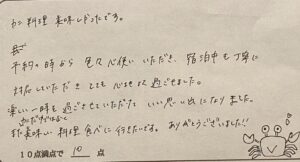 カニ料理 美味しかったです。
予約の時から 色々心使いいただき、宿泊中も丁寧に
対応していただき とても 心地よく過ごせました。
楽しい一時を過ごさせていただけて いい思い出になりました。
また美味しい料理食べに行きたいです。 ありがとうございました!!
10点満点で 10 点